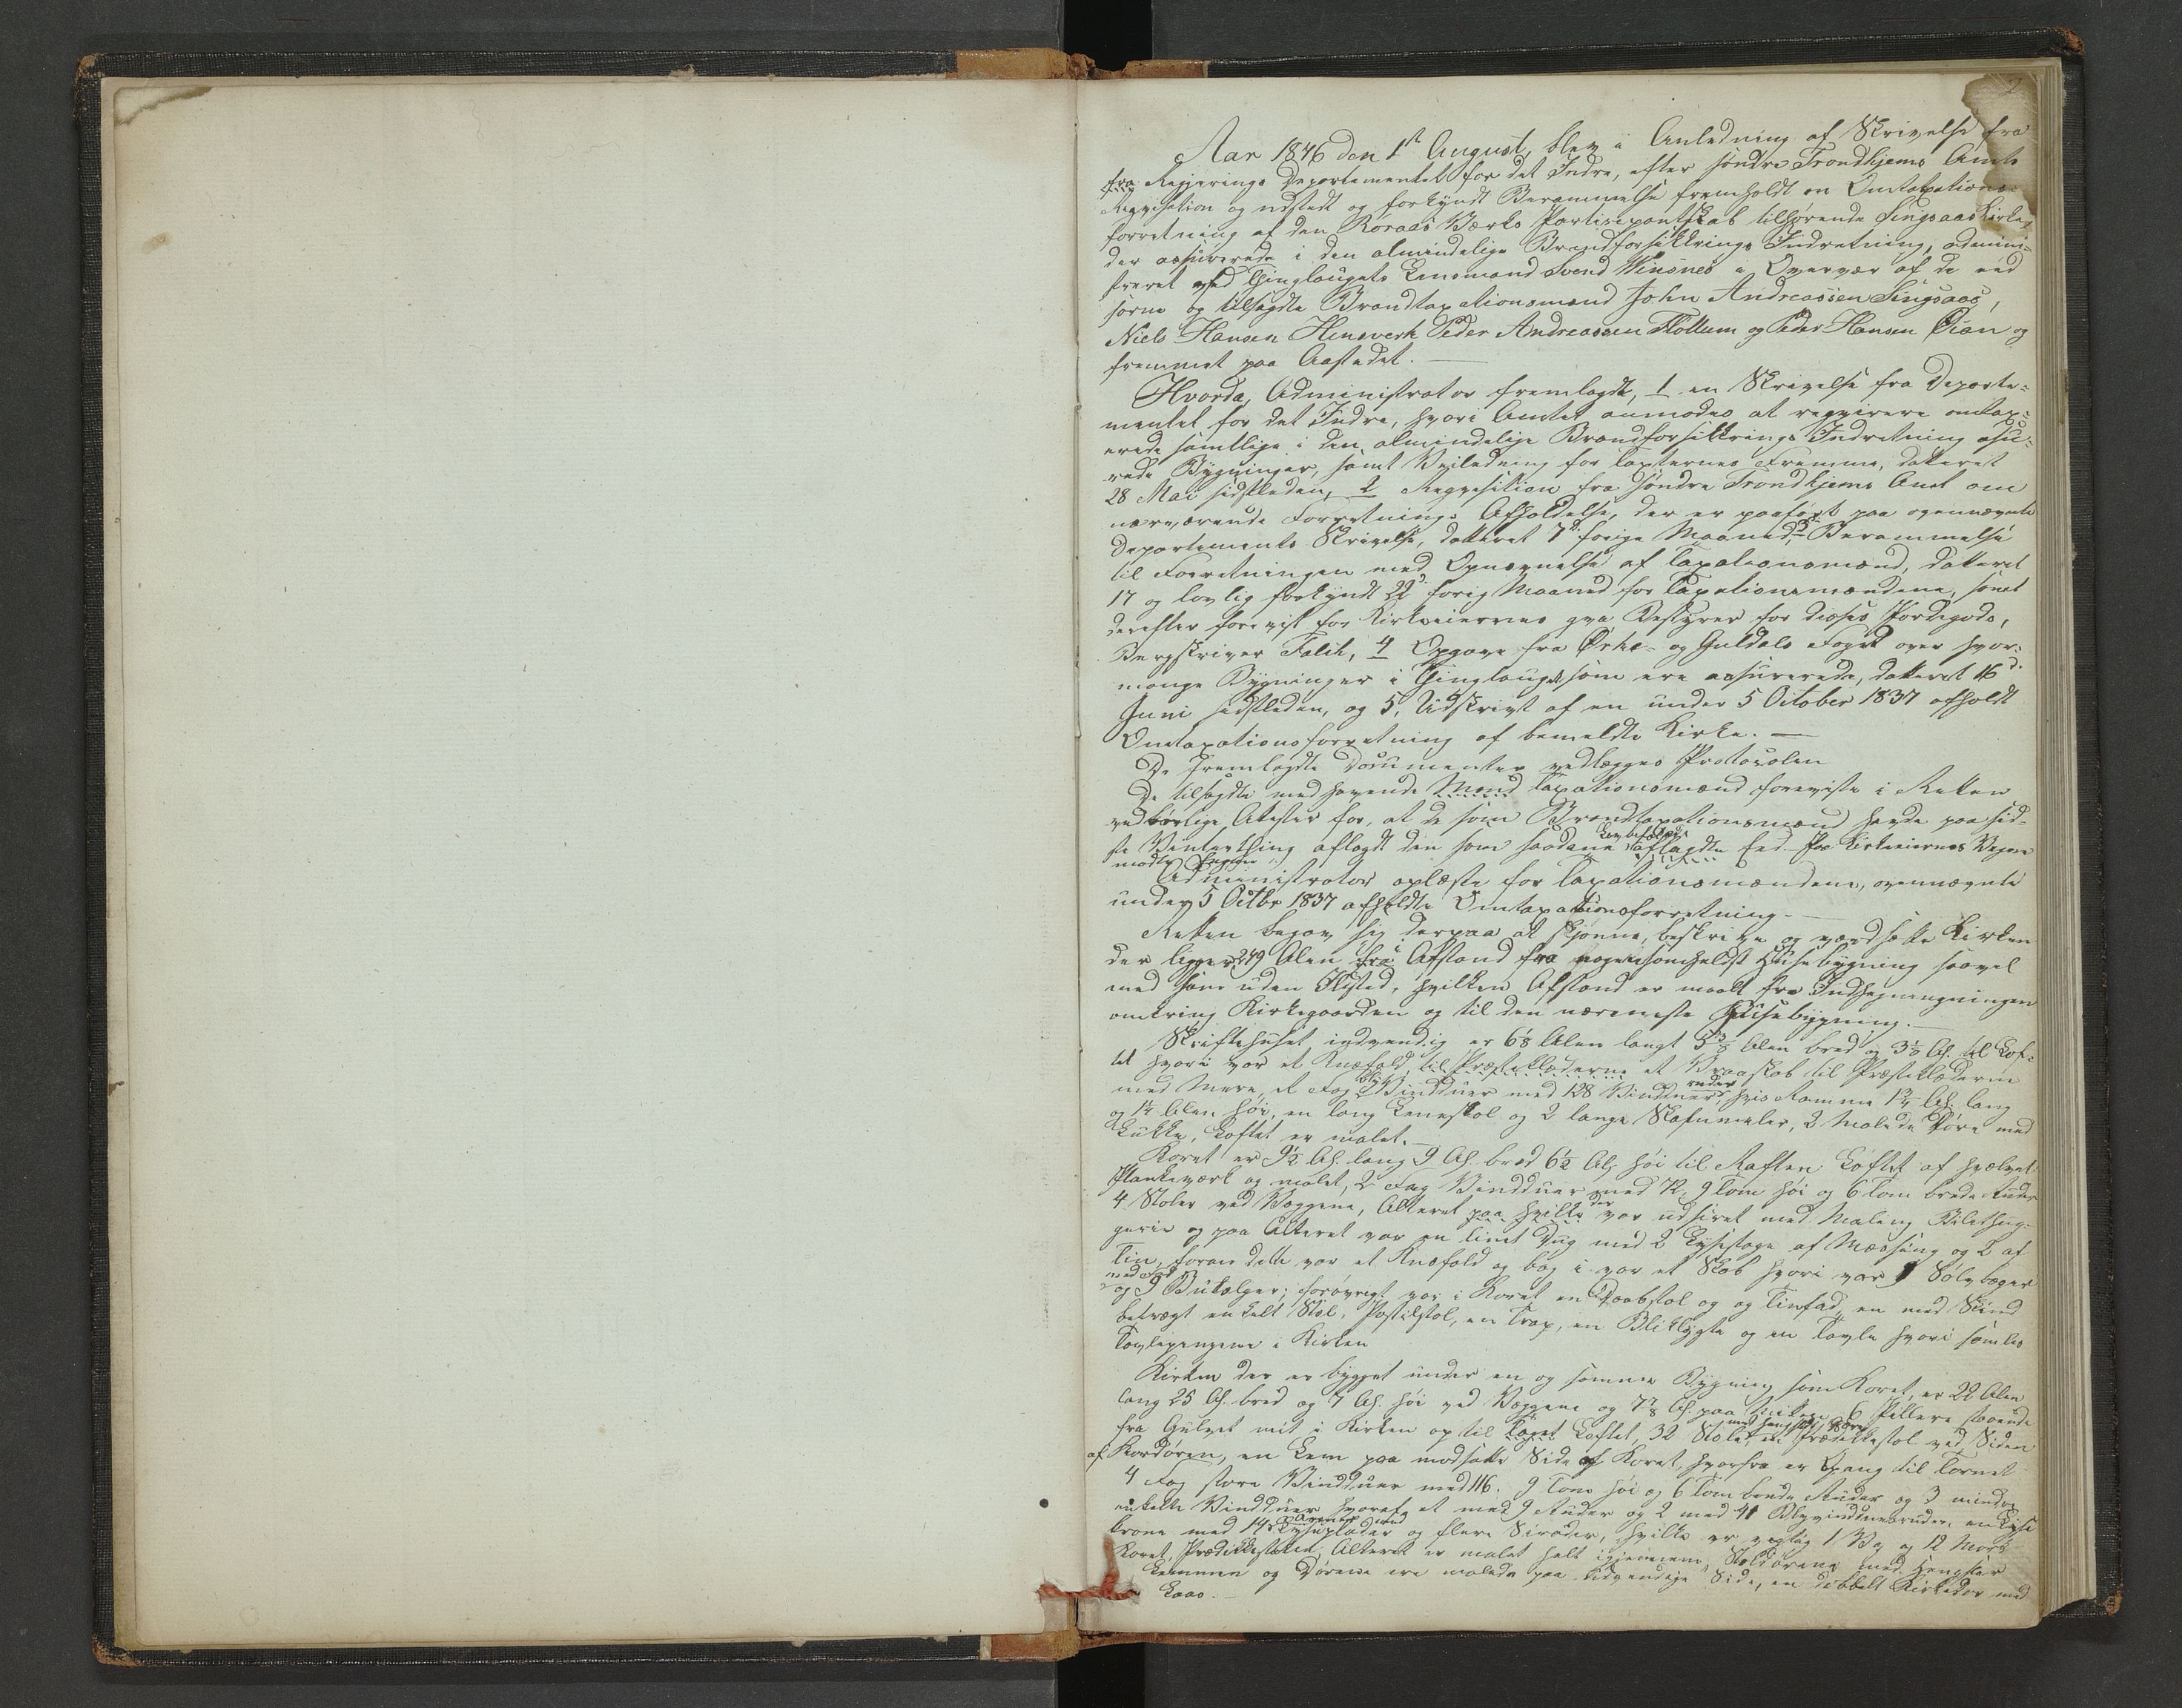 2
Aar 1846 den 1ste August, blev i Anledning af Skrivelse fra
fra Regjerings Departementet for det Indre, efter søndre Trondhjems Amts
Reqvisition og udstedt og forkyndt Berammelse fremholdt en Omtaxations-
forretning af den Røraas Værks Partisipantskab tilhørende Singsaas Kirke,
der assurerede i den almindelige Brandforsikkrings Indretning, admini-
streret ved Thinglaugets Lensmand Svend Winsnes i Overvær af de eed
sorne og tilsagdte Brandtaxationsmænd John Andreassen Singsaas,
Niels Hansen Hinsverk Peder Andreassen Flottum og Peder Hansen Øian og
fremmet paa Aastedet.
Hvorda, Administrator fremlagdt, 1 en Skrivelse fra Departe-
mentet for det Indre, hvori Amtet anmodes at reqvirere omtax-
erede samtlige i den almindelige Brandforsikkrings Indretning assu-
rede Bygninger, samt Veiledning for Taxternes Fremme, datteret
28 Mai sidstleden, 2 Reqvisition fra søndre Trondhjems Amt om
nærværende Forretnings Afholdelse, der er paaført paa ovennævnte
Departements Skrivelse, datteret 7d. forige Maaned, 3 Berammelse
til Forretningen med Opnævnelse af Taxationsmænd, datteret
17 og lovlig forkyndt 22d. forig Maaned for Taxationsmændene, samt
derefter forevist for Kirkeiernes qva Bestyrer for disses Jordegods,
Bergskriver Falck, 4 Opgave fra Orke- og Guldals Foged over hvor-
mange Bygninger i Thinglauget som ere assurerede, datteret 16d.
Juni sidstleden, og 5, Udskrivt af en under 5 October 1837 afholdt
Omtaxationsforretning af bemeldte Kirke. —
De fremlagdte Documenter vedlægges Protocolen
De tilsagdte medhavende Mænd Taxationsmænd foreviste i Retten
vedbørlige Atester for, at de som Brandtaxationsmænd havde paa sid-
ste Vinterthing aflagdt den som saadane Lovbefalede aflagdte Eed. For Kirkeiernes Vegne
mødte Ingen
Administrator oplæste for Taxationsmændene, ovennævnte
under 5 Octbr 1837 afholdte Omtaxationsforretning. —
Retten begav sig derpaa at skjønne, beskrive og værdsætte Kirken
der ligger 249 Alen fra i Afstand fra nogensomhelst Huusebygning saavel
med som uden Ildsted, hvilken Afstand er maalt fra Indhegnengningen
omkring Kirkegaarden og til den nærmeste Huusebygning. —
Skriftehuset indvendig er 6⅛ Alen langt 5⅜ Alen bred og 3⅛ Al. til Lof-
tet hvori var et Knæfald, til Præsteklæderne et Vraaskab til Præsteklæderne
med Mere, et Fag Bly Vindduer med 128 Vindduer ruder, hvis Ramme 1¾ Al. lang
og 1¼ Alen høi, en lang Lænestol og 2 lange Skafumeler, 2 Malede Døre med
Lukke, Loftet er malet. —
Koret er 9½ Al. lang 9 Al. bred 6½ Al. høi til Raften Loftet af hvælvet
Plankeværk og malet, 2 Fag Vindduer med 72, 9 Tom høi og 6 Tom brede Ruder
4 Stoler ved Væggene, Alteret paa hvilke der var udsiret med Maleng Bilethug-
gerie og paa Alteret var en linet Dug med 2 Lysestage af Messing og 2 af
Tin, foran dette var et Knæfald og bag i var et Skab hvori var 1 Sølvbæger
med Fod og 9 Butelger; forøvrigt var i Koret en Daabstol og og Tinfad, en med Skind
betrægt enkelt Stol, Postilstol, en Trap, en Bliklygte og en Tavle hvori samles
Tavlepengene i Kirken
Kirken der er bygget under en og samme Bygning som Koret, er 22 Alen
lang 25 Al. bred og 7 Al. høi ved Væggene og 7⅞ Al. paa 6 Pillere staaende
fra Gulvet mit i Kirken op til Taget Loftet, 32 Stoler med hengslede Døre en Prædikestol ved Siden
af Kordøren, en Lem paa modsatte Side af Koret, hvorfra er Opang til Tornet
4 Fag store Vindduer med 116. 9 Tom høi og 6 Tom brede Ruder og 3 mindre
enkelte Vindduer hvoraf et med 9 Ruder og 2 med 41 Blyvindduesruder, en Lyse
krone med 14 Armer med Lysepladser og flere Sirader, hvilke er vegtig 1 Vg og 12 Mark
Koret, Prædikkestolen Alteret er malet helt igjennem, Stoldørene med hengsler
Lemmen og Dørene ere malede paa udvendige Side, en dobbelt Kirkedør med
Laas. —